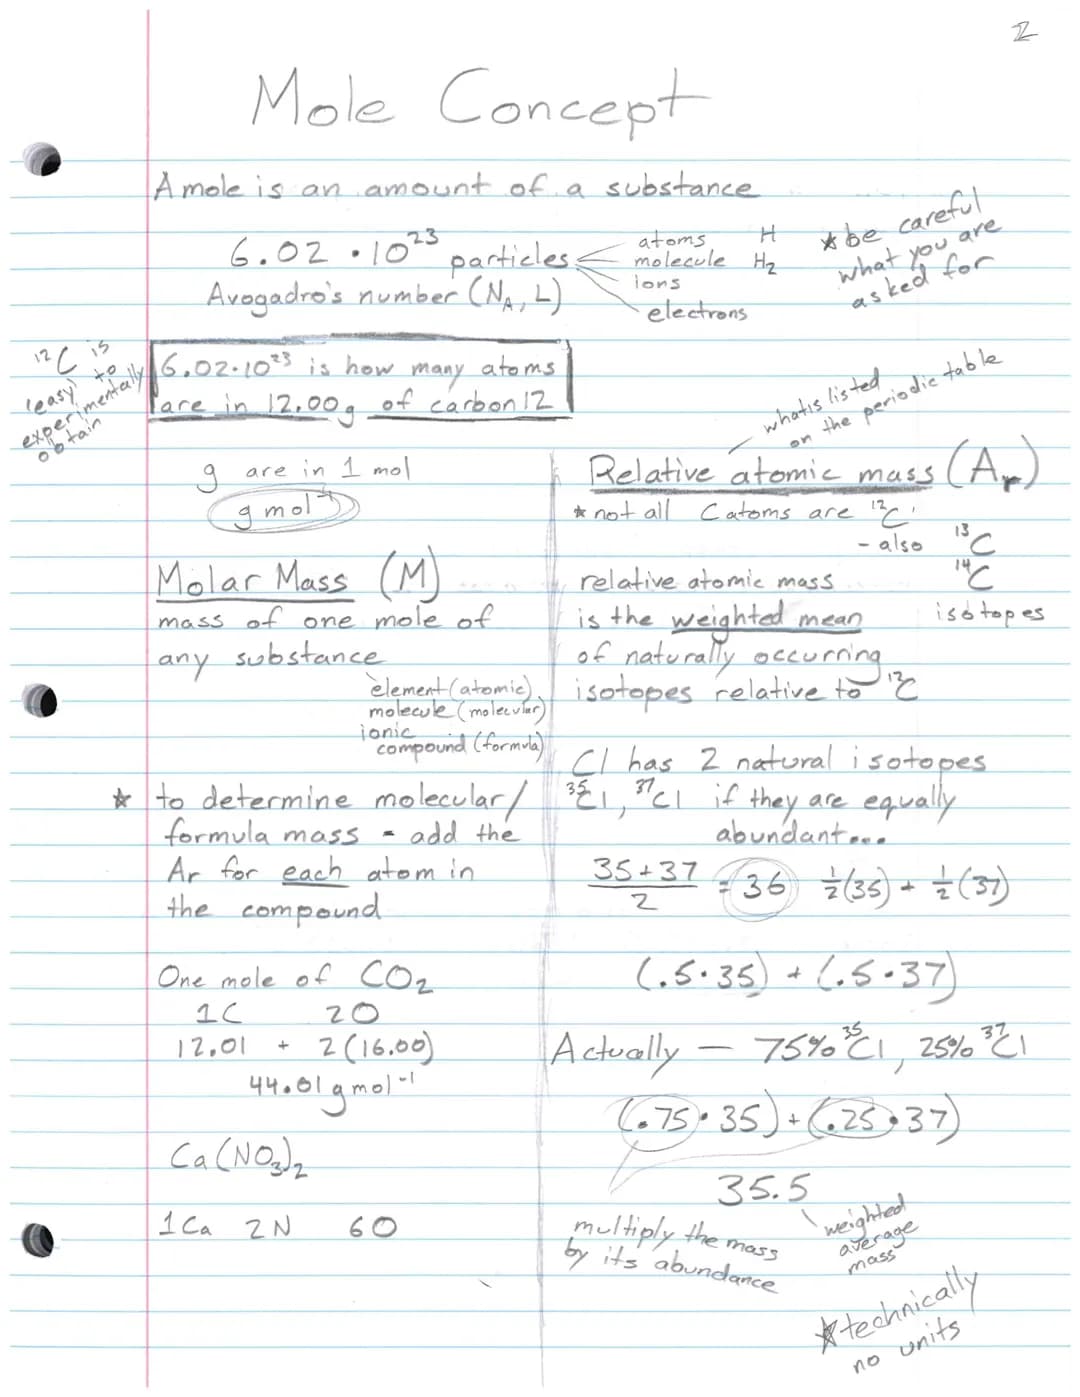 2
Mole Concept
A mole is an amount of a substance
6.02 · 10²³ particles
atoms H
molecule H₂
ions
electrons
Avogadro's number (N_A, L)
*be careful
what you are
asked for
¹²C is
(easy) to
experimentally
obtain
6.02·10²³ is how many atoms
are in 12.00g of carbon 12
g are in 1 mol
g mol⁻¹
Molar Mass (M)
mass of one mole of
any substance
element (atomic)
molecule (molecular)
ionic
compound (formula)
* to determine molecular/
formula mass - add the
Ar for each atom in
the compound
One mole of CO₂
1C 2O
12.01 + 2(16.00)
44.01 g mol⁻¹
Ca(NO₃)₂
1Ca 2N 6O
whatis listed
on the periodic table
Relative atomic mass (Aᵣ)
* not all C atoms are ¹²C
- also ¹³C
¹⁴C
isotopes
relative atomic mass
is the weighted mean
of naturally occurring
isotopes relative to ¹²C
Cl has 2 natural isotopes
³⁵Cl, ³⁷Cl if they are equally
abundant...
35+37/2 = 36 ½(35) + ½(37)
(.5·35) + (.5·37)
Actually — 75% ³⁵Cl, 25% ³⁷Cl
(.75·35) + (.25·37)
35.5
weighted
average
mass
multiply the mass
by its abundance
*technically
no units